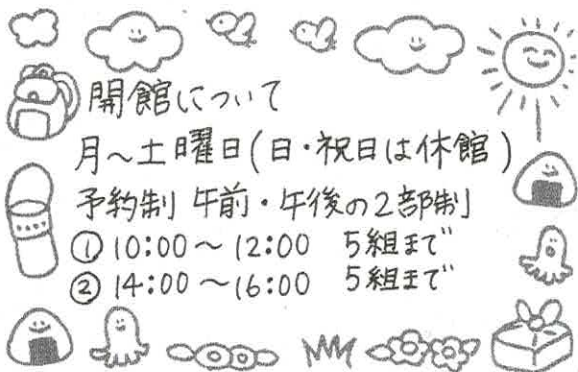 開館について
月～土曜日(日・祝日は休館)
予約制 午前・午後の2部制
① 10:00～12:00 5組まで
② 14:00～16:00 5組まで